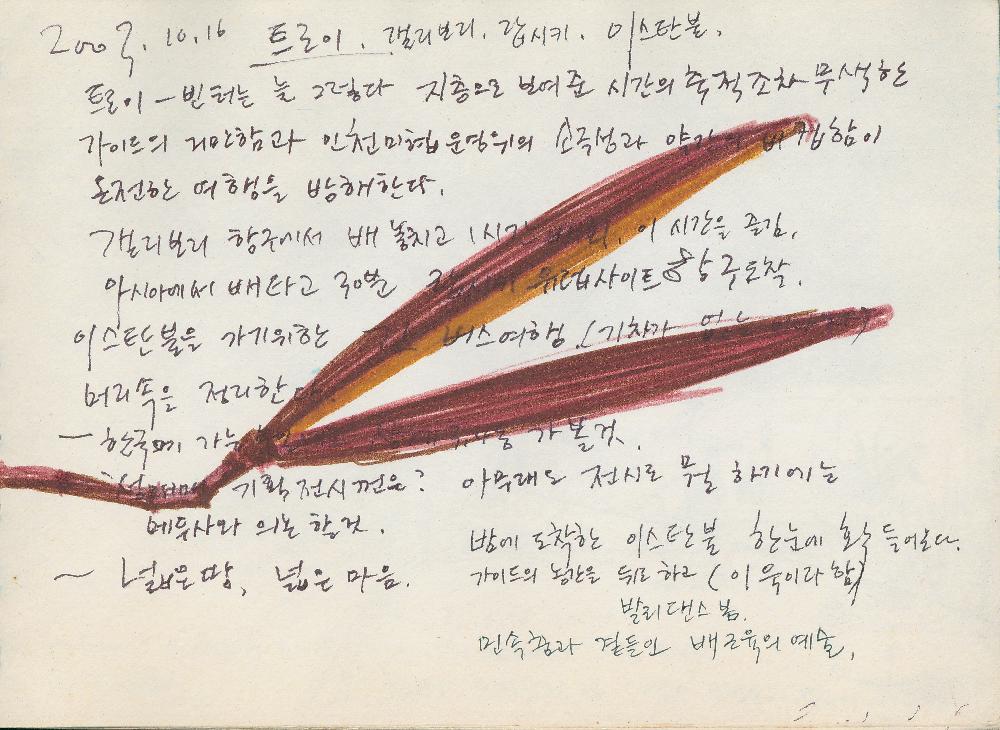 2003. 10. 16 트로이. 갤리보리. 랍시키. 이스탄불.
트로이 - 빈터는 늘 그렇다 지층으로 보여준 시간의 축적조차 무색한
가이드의 거만함과 인천미협 운영위의 소극성과 약간의 비겁함이
온전한 여행을 방해한다.
갤리보리 항구에서 배 놓치고 1시간 이 시간을 즐김.
아시아에서 배타고 30분 유럽사이트 항구도착.
이스탄불을 가기위한 버스여행. (기차가 없는
머리속을 정리한다.
- 한국에 가능 가볼것.
기획전시껀은? 아무래도 전시로 뭘 하기에는
메두사와 의논할것.
~ 넓은땅, 넓은 마음.
밤에 도착한 이스탄불 한눈에 확 들어온다.
가이드의 농간을 뒤로하고 (이욱이라 함)
발리댄스 봄.
민속춤과 곁들인 배근육의 예술.